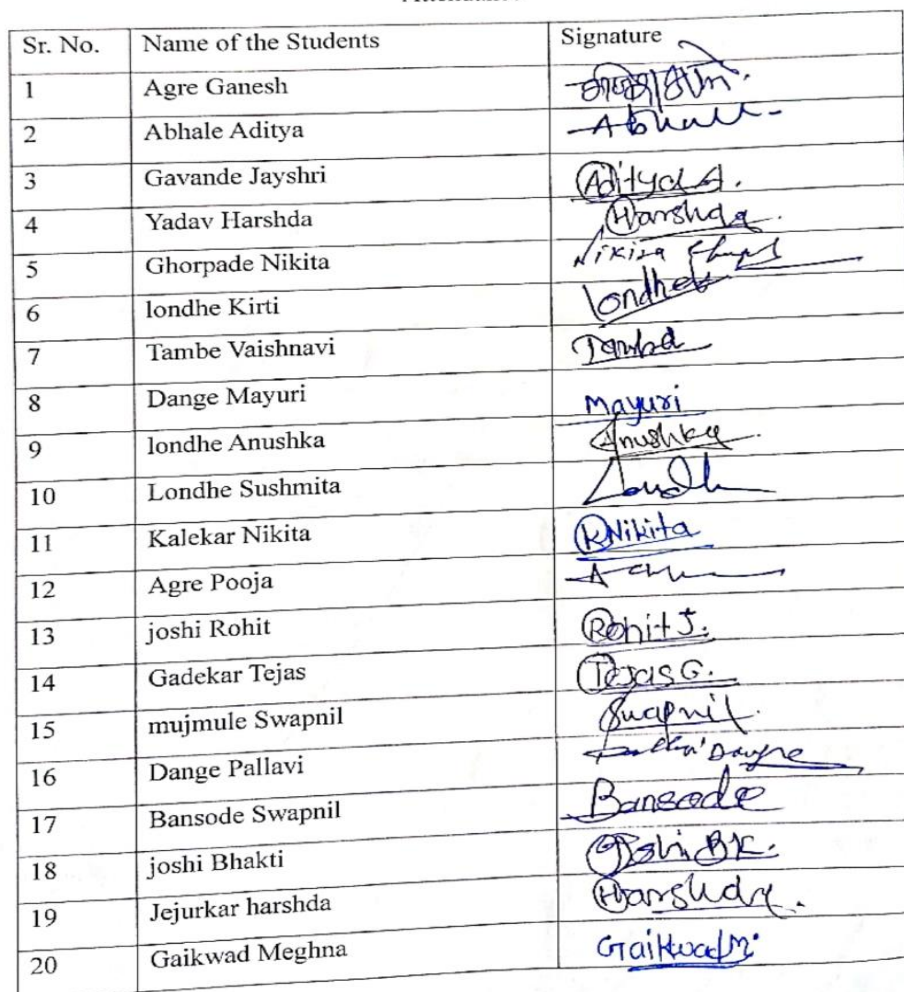 Sr. No. Name of the Students Signature
1 Agre Ganesh
2 Abhale Aditya Abhale
3 Gavande Jayshri Aditya A.
4 Yadav Harshda Harshda
5 Ghorpade Nikita Nikita
6 londhe Kirti londhe
7 Tambe Vaishnavi Tambe
8 Dange Mayuri Mayuri
9 londhe Anushka Anushka
10 Londhe Sushmita
11 Kalekar Nikita K Nikita
12 Agre Pooja
13 joshi Rohit Rohit J.
14 Gadekar Tejas Tejas G.
15 mujmule Swapnil Swapnil
16 Dange Pallavi Dange
17 Bansode Swapnil Bansode
18 joshi Bhakti Joshi BK.
19 Jejurkar harshda Harshda
20 Gaikwad Meghna Gaikwad M.